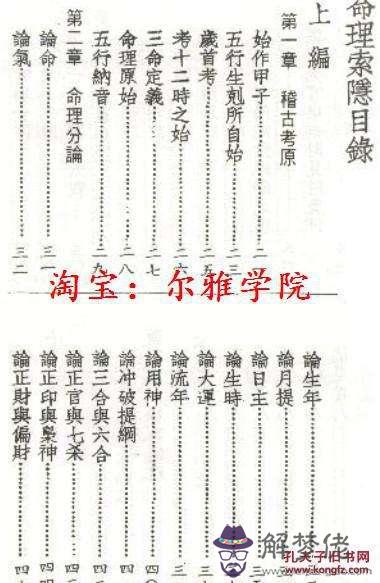 命理索隱目錄
上編
第一章 稽古考原
始作甲子……二
五行生剋所自始……二三
歲首考……二五
考十二時之始……二六
三命定義……二七
命理原始……二八
五行納音……二九
第二章 命理分論
論命……三一
論氣……三二
淘宝：尔雅学院
論生年
論月提
論日主
論生時
論大運……三
論流年……三
論用神……四〇
論冲破提綱……四
論三合與六合……四
論正官與七杀……四
論正印與梟神……四
論正財與偏財……四
解梦佬
孔夫子旧书网
www.kongfz.com